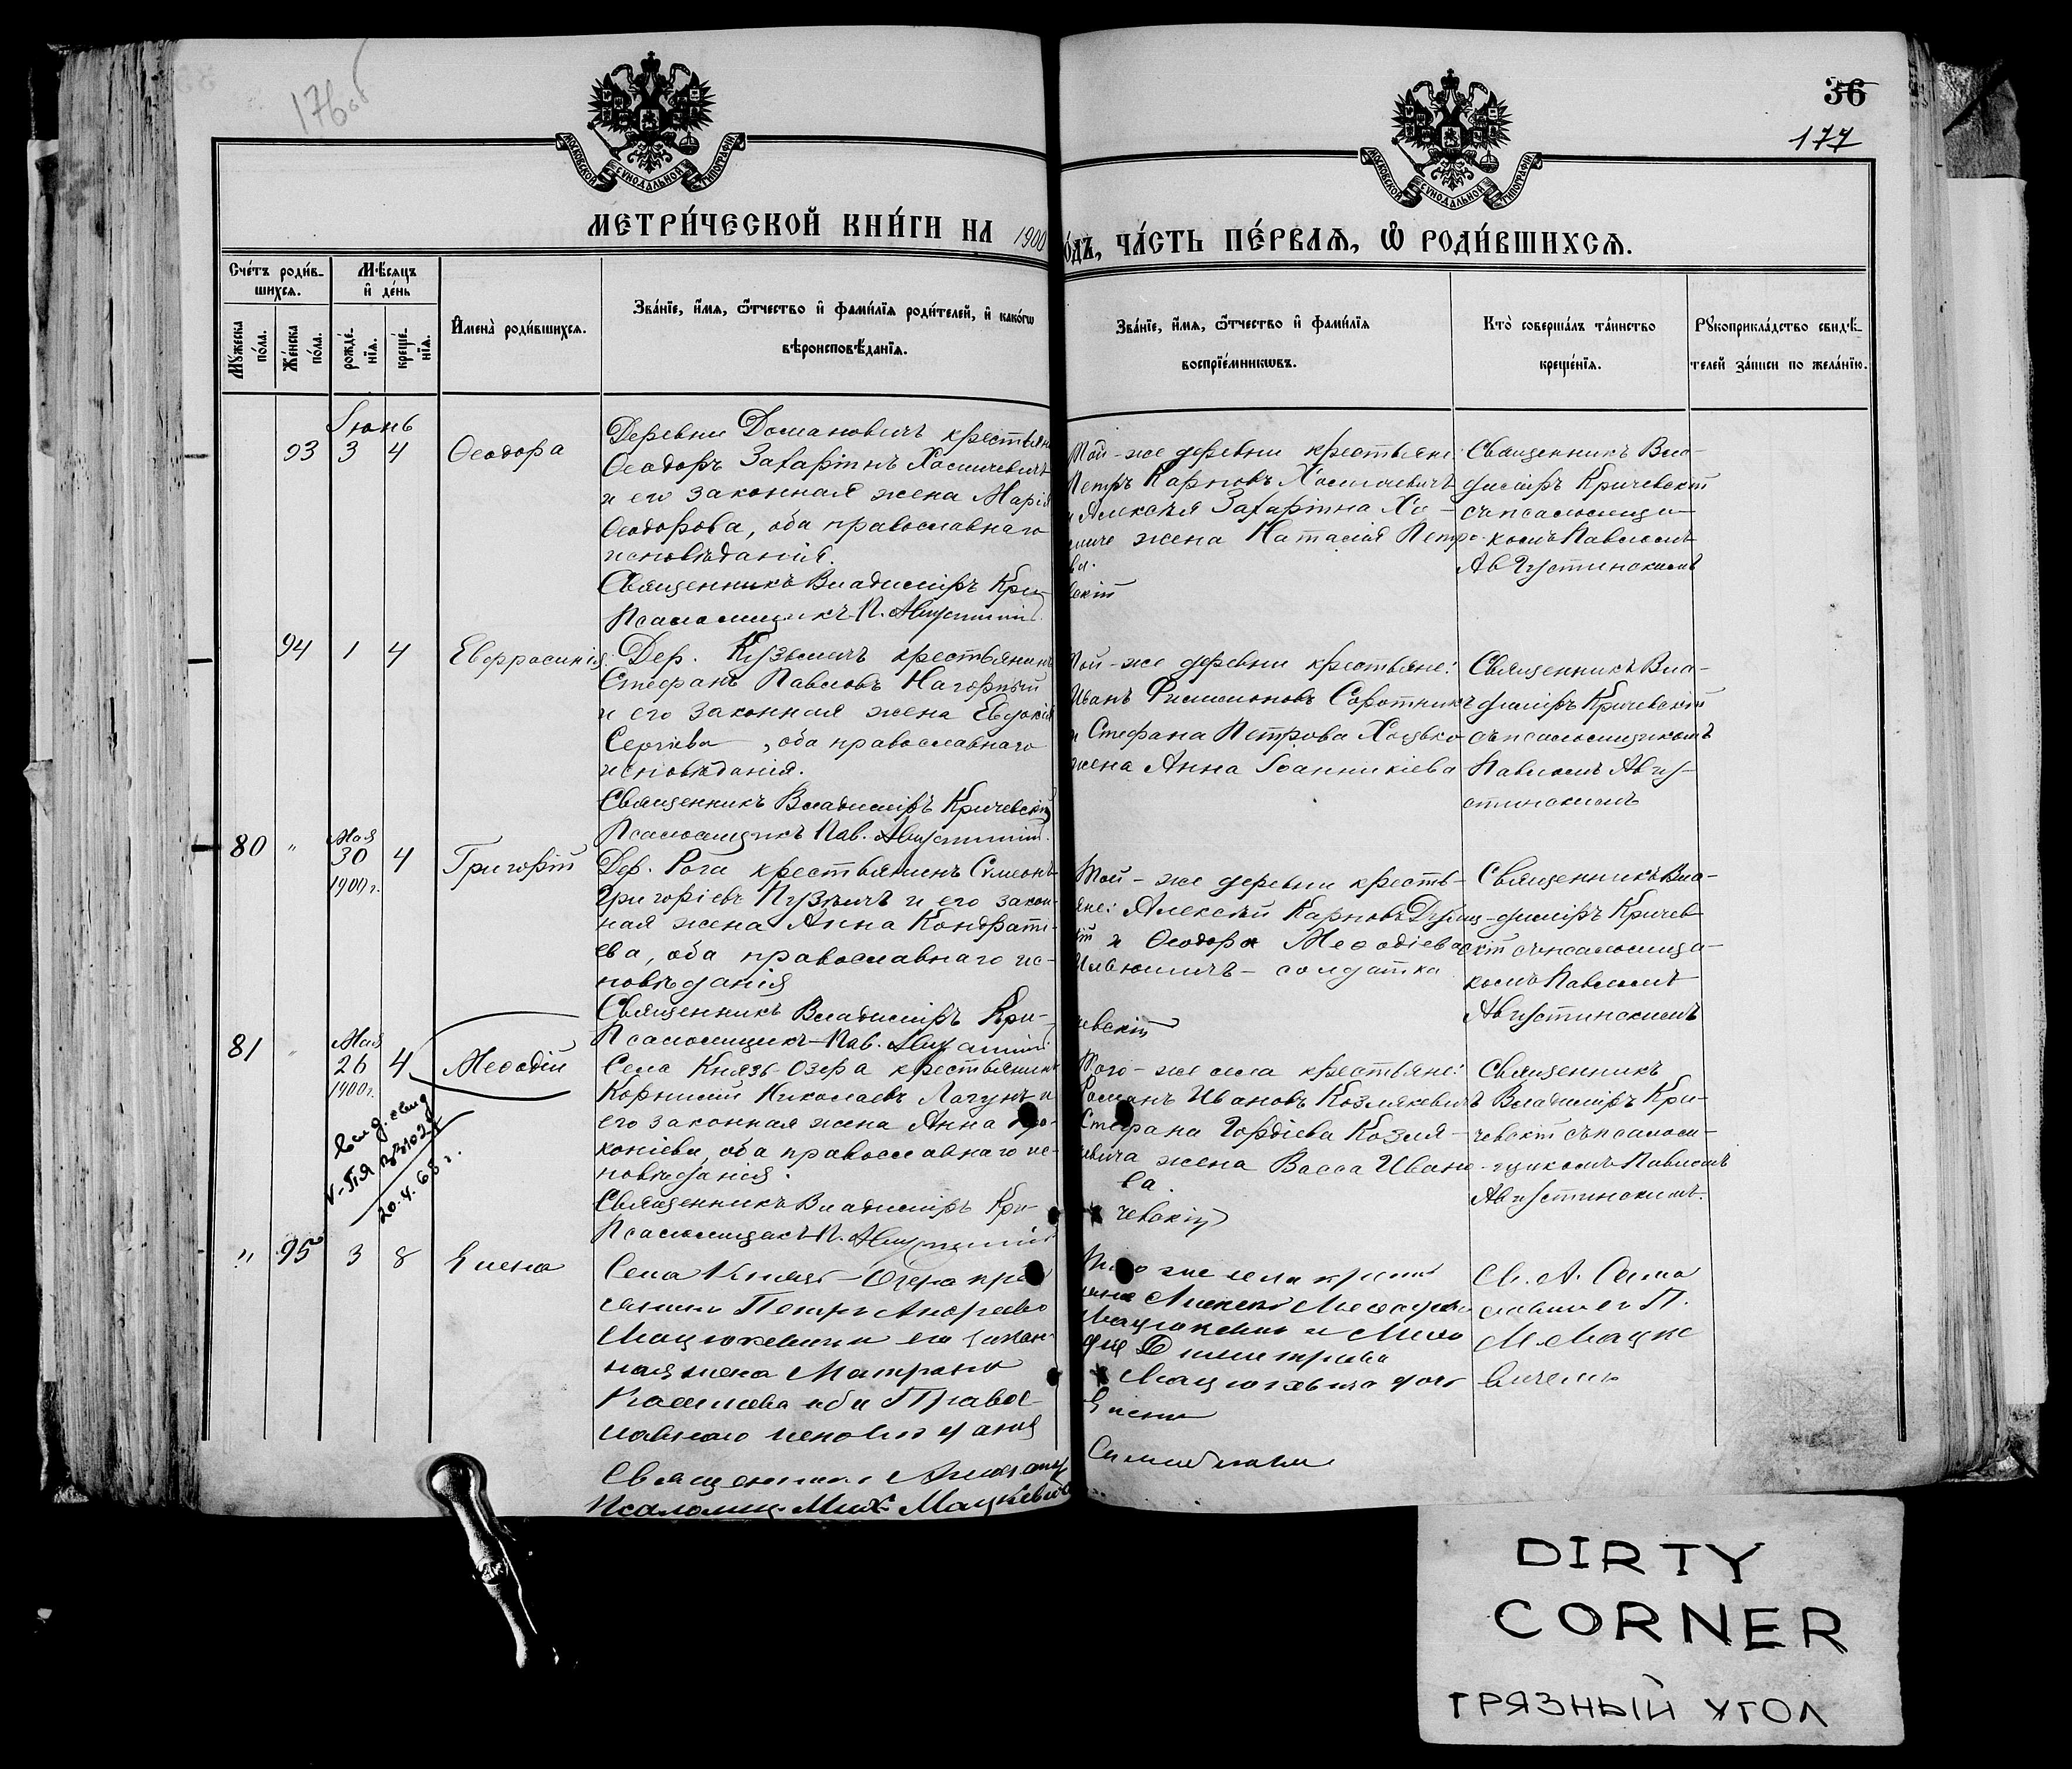 176об
36
177
МОСКОВСКОЙ СѴНОДАЛЬНОЙ ТИПОГРАФІИ
МОСКОВСКОЙ СѴНОДАЛЬНОЙ ТИПОГРАФІИ
МЕТРИ́ЧЕСКОЙ КНИ́ГИ НА 1900
О́ДЪ, ЧА́СТЬ ПЕ́РВАѦ, Ѿ РОДИ́ВШИХСѦ.
Сче́тъ роди́в-
шихсѧ.
Мѣ́сѧцъ
и҆ де́нь
Мꙋ́жеска
по́ла.
Же́нска
по́ла.
рожде́-
нїѧ.
креще́-
нїѧ.
И҆мена̀ роди́вшихсѧ.
Зва́нїе, и҆́мѧ, ѻ҆́тчество и҆ фами́лїѧ роди́телей, и҆ како́гѡ
вѣроисповѣ́данїѧ.
Зва́нїе, и҆́мѧ, ѻ҆́тчество и҆ фами́лїѧ
воспрїе́мникѡвъ.
Кто̀ соверша́лъ та́инство
креще́нїѧ.
Рꙋкоприкла́дство свидѣ́-
телей за́писи по жела́нїю.
Іюнь
93 3 4 Ѳеодора
Деревни Домановичъ крестьян
Ѳеодоръ Захаріинъ Хасмичевичъ
и его законная жена Марія
Ѳеодорова, оба православнаго
исповѣданія.
Священникъ Владиміръ Кри-
Псаломщикъ П. Августин
Той-же деревни крестьяне:
Петръ Карповъ
и Алексѣя Захаріина Хо-
жена Наталія Петро-
ва.
вскій
Священникъ Вла-
диміръ Кричевскій
съ псаломщи-
комъ Павломъ
Августинскимъ
94 1 4 Евфросинія
Дер. Кузьмичъ крестьянинъ
Стефанъ Павловъ Нагорный
и его законная жена Евдокія
Сергіева, оба православнаго
исповѣданія.
Священникъ Владиміръ Кричевскій
Псаломщикъ Пав. Августин
Той-же деревни крестьяне:
Иванъ Филимоновъ Саротникъ
и Стефана Петрова Хацько
жена Анна Іоанникіева
Священникъ Вла-
диміръ Кричевскій
съ псаломщикомъ
Павломъ Авгу-
стинскимъ
80 " Мая 30 1900 г. 4 Григорій
Дер. Рога крестьянинъ Симеонъ
Григоріевъ Пузычъ и его закон-
ная жена Анна Кондраті-
ева, оба православнаго ис-
повѣданія
Священникъ Владиміръ Кри-
Псаломщикъ Пав. Августин
Той-же деревни кресть-
яне: Алексѣй Карповъ
и Ѳеодора Меѳодіева
Ильюшичъ - солдатка
чевскій
Священникъ Вла-
диміръ Кричев-
скій съ псаломщи-
комъ Павломъ
Августинскимъ
81 " Мая 26 1900 г. 4 Меѳодій
Выд. свид.
V-ПЯ
20.4.65 г.
Села Князь-Озера крестьянинъ
Корнилій Николаевъ Лагунъ и
его законная жена Анна Про-
копіева, оба православнаго ис-
повѣданія.
Священникъ Владиміръ Кри-
Псаломщикъ П. Августин
Того-же села крестьяне:
Романъ Ивановъ Козлякевичъ
Стефана Гордіева Козля-
кевича жена Васса Ивано-
ва.
чевскій
Священникъ
Владиміръ Кри-
чевскій съ псалом-
щикомъ Павломъ
Августинскимъ.
" 95 3 8 Елена
Села Князь-Озера кре
Петръ Андреевъ
Мацюкевичъ и его закон-
ная жена Матрона
оба Правос-
лавнаго исповѣданія
Священникъ
Псаломщ. Мих. Мацкевичъ
же села крест
Мацюкевичъ и
Димитріева
Мацюкевича дочь
Елена
Св. А.
П.
М. Мацке
вичемъ
DIRTY
CORNER
ГРЯЗНЫЙ УГОЛ